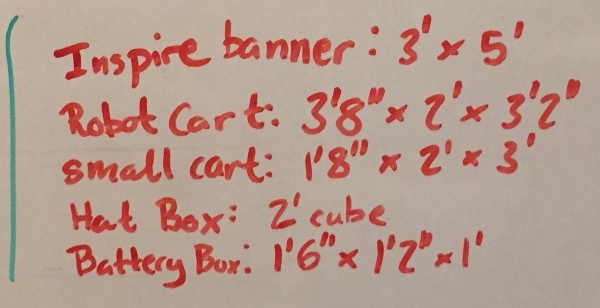 Inspire banner: 3' x 5'
Robot Cart: 3'8" x 2' x 3'2"
small cart: 1'8" x 2' x 3'
Hat Box: 2' cube
Battery Box: 1'6" x 1'2" x 1'